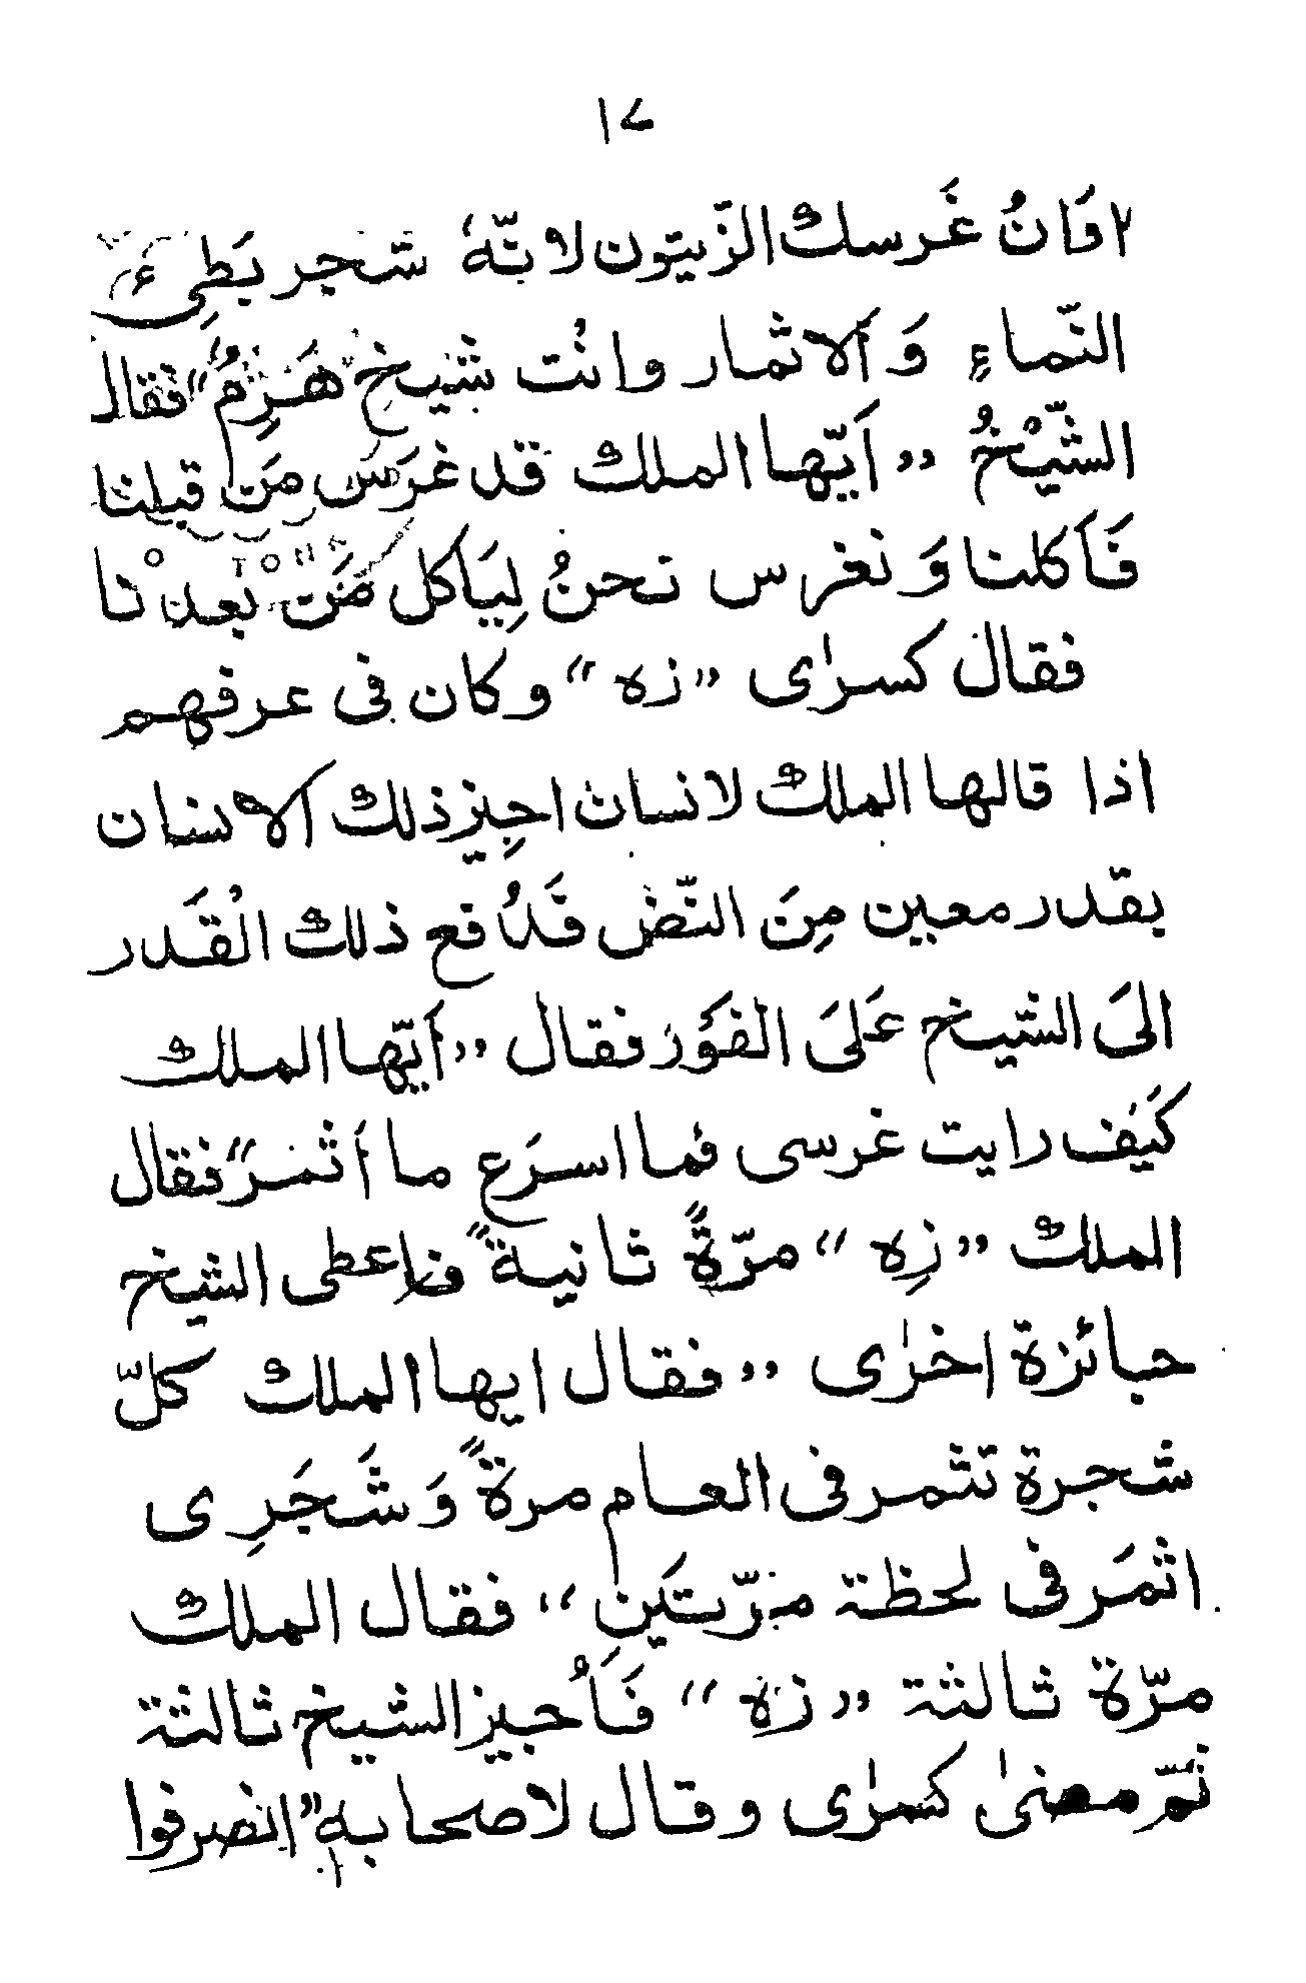 ١٧
٧ فَانُ غَرسك الزّيتون لانّهُ شجر بَطِیء
النّماءِ وَ اَلاثمار وانْت شيخ هَرِمُ" فقال
الشّيْخُ "اَيّها الملك قد غَرَسَ مَن قبلنا
فَاَكلنا وَ نغرس نحنُ لِيَاكل مَن بعدنا
فقال كسرٰى "زه" وكان فى عرفهم
اذا قالها الملك لانسان اجِيز ذلك الانسان
بقدر معين مِنَ النّض فَدُفع ذلك الْقَدر
الىَ الشيخ عَلىَ الفَوْر فقال "اَيّها الملك
كَيْف رايت غرسى فما اسرَع ما أثمر" فقال
الملك "زِه" مرّةً ثانيةً فاعطى الشيخ
جائزة اخرٰى "فقال ايها الملك كلّ
شجرة تثمر فى العام مرةً وَ شَجَرِى
اثمَر فى لحظة مرّتَينِ" فقال الملك
مرّة ثالثة "زه" فَاُجيز الشيخ ثالثة
ثمّ مضىٰ كسرٰى وقال لاصحابهٖ "انصرفوا